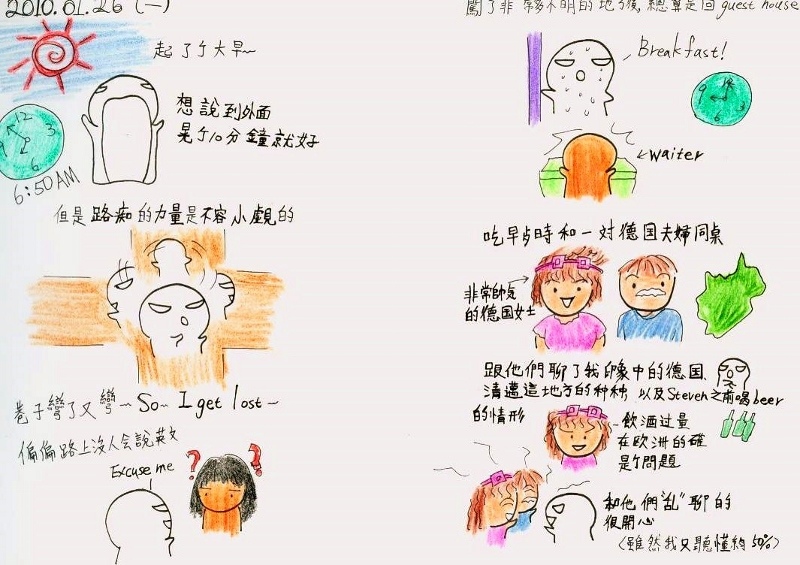 2010.01.26 (一)
起了个大早~
想說到外面
晃个10分鐘就好
12
3
6
9
6:50AM
但是路痴的力量是不容小覷的
巷子彎了又彎~So~ I get lost~
偏偏路上沒人会說英文
Excuse me
? ?
闖了非常多不明的地方後,總算是回guest house
Breakfast!
waiter
吃早歺時和一对德国夫婦同桌
非常帥気
的德国女士
跟他們聊了我印象中的德国,
清邁這地方的种种,以及Steven之前喝beer
的情形
飲酒过量
在欧洲的確
是个問題
和他們"乱"聊的
很開心
(雖然我只聽懂約50%)